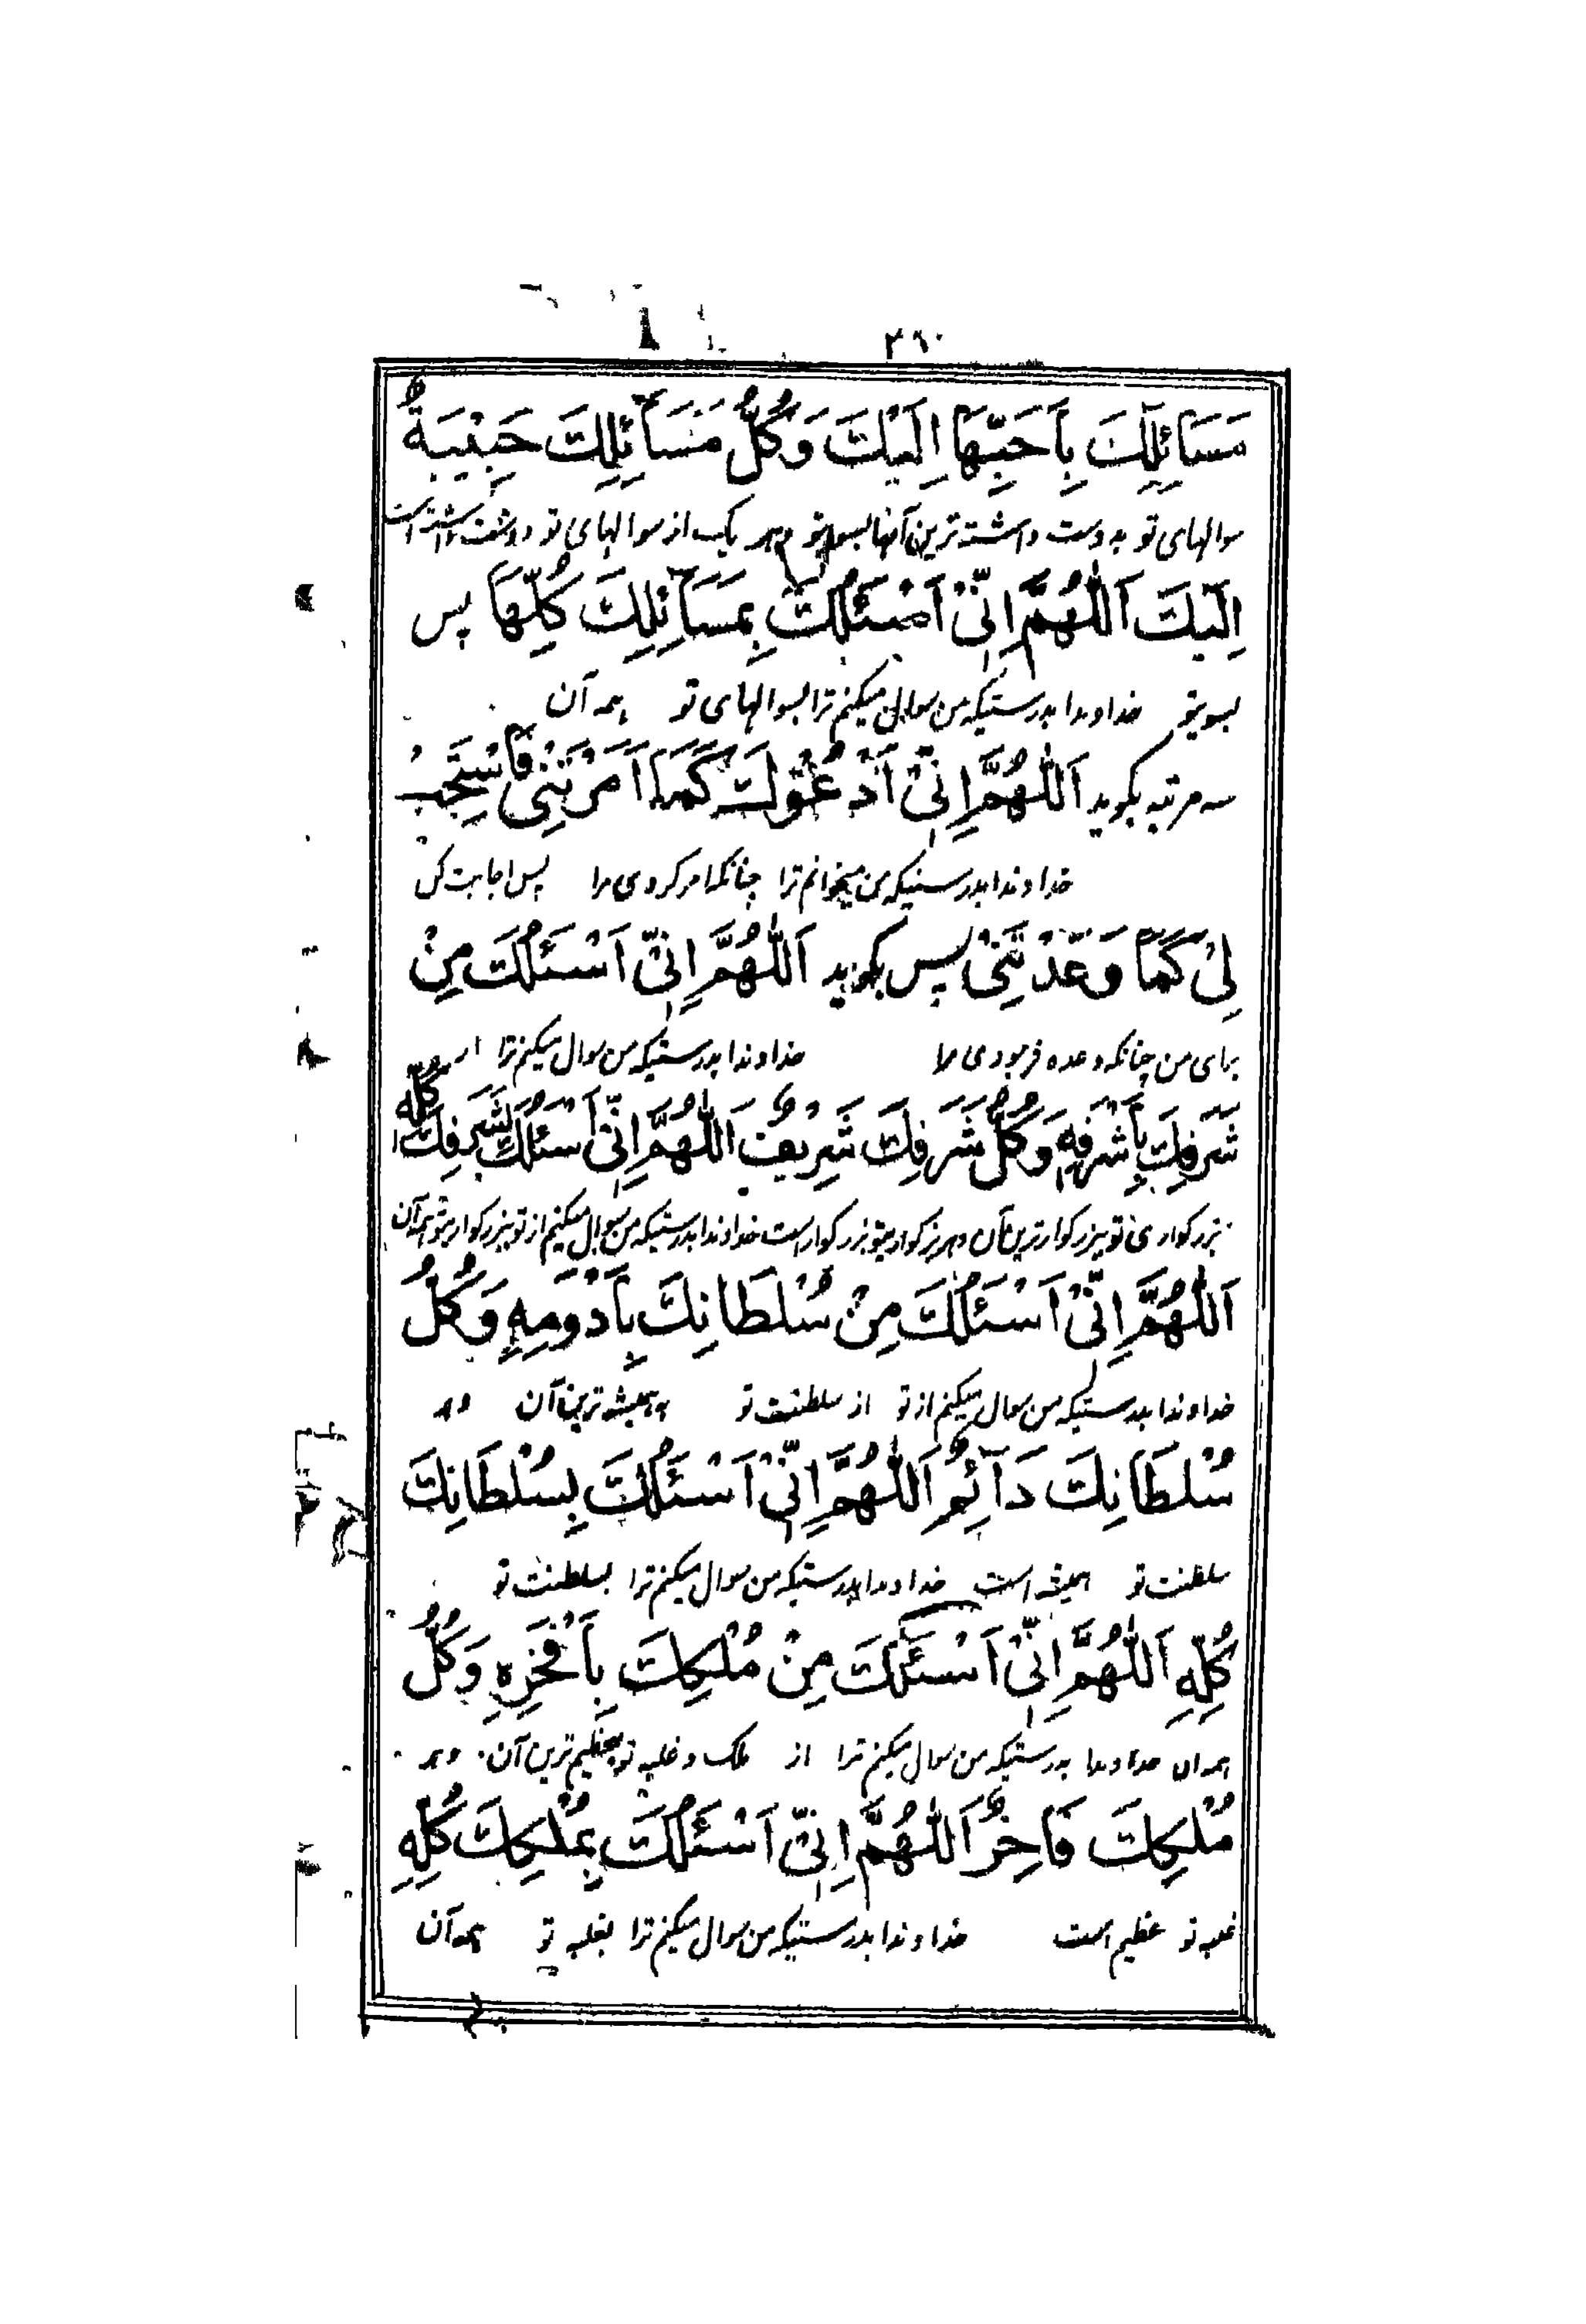 ٣٦٠
مَسَائِلِكَ بِاَحَبِّهَا اِلَيْكَ وَكُلُّ مَسَآئِلِكَ حَبِيْبَةٌ
سوالهای تو به دوست داشته ترین آنها بسوی تو و هر یک از سوالهای تو دوست داشته است
اِلَيْكَ اَللّٰهُمَّ اِنِّىْ اَسْئَلُكَ بِمَسَآئِلِكَ كُلِّهَا پس
بسویتو خداوندا بدرستیکه من سوال میکنم ترا بسوالهای تو همه آن
سه مرتبه بگوید اَللّٰهُمَّ اِنِّىْ اَدْعُوْكَ كَمَا اَمَرْتَنِىْ فَاسْتَجِبْ
خداوندا بدرستیکه من میخوانم ترا چنانکه امر کردی مرا پس اجابت کن
لِىْ كَمَا وَعَدْتَنِىْ پس بگوید اَللّٰهُمَّ اِنِّىْ اَسْئَلُكَ مِنْ
برای من چنانکه وعده فرمودی مرا خداوندا بدرستیکه من سوال میکنم ترا از
شَرَفِكَ بِاَشْرَفِهِ وَكُلُّ شَرَفِكَ شَرِيْفٌ اَللّٰهُمَّ اِنِّىْ اَسْئَلُكَ بِشَرَفِكَ كُلِّهِ
بزرگواری تو ببزرگوارترین آن و هر بزرگواریتو بزرگوار است خداوندا بدرستیکه من سوال میکنم از تو ببزرگواریتو همه آن
اَللّٰهُمَّ اِنِّىْ اَسْئَلُكَ مِنْ سُلْطَانِكَ بِاَدْوَمِهِ وَكُلُّ
خداوندا بدرستیکه من سوال میکنم از تو از سلطنت تو به همیشه ترین آن و هر
سُلْطَانِكَ دَآئِمٌ اَللّٰهُمَّ اِنِّىْ اَسْئَلُكَ بِسُلْطَانِكَ
سلطنت تو همیشه است خداوندا بدرستیکه من سوال میکنم ترا بسلطنت تو
كُلِّهِ اَللّٰهُمَّ اِنِّىْ اَسْئَلُكَ مِنْ مُلْكِكَ بِاَفْخَرِهِ وَكُلُّ
همه آن خداوندا بدرستیکه من سوال میکنم ترا از ملک و غلبه تو بعظیم ترین آن و هر
مُلْكِكَ فَاخِرٌ اَللّٰهُمَّ اِنِّىْ اَسْئَلُكَ بِمُلْكِكَ كُلِّهِ
غلبه تو عظیم است خداوندا بدرستیکه من سوال میکنم ترا بغلبه تو همه آن